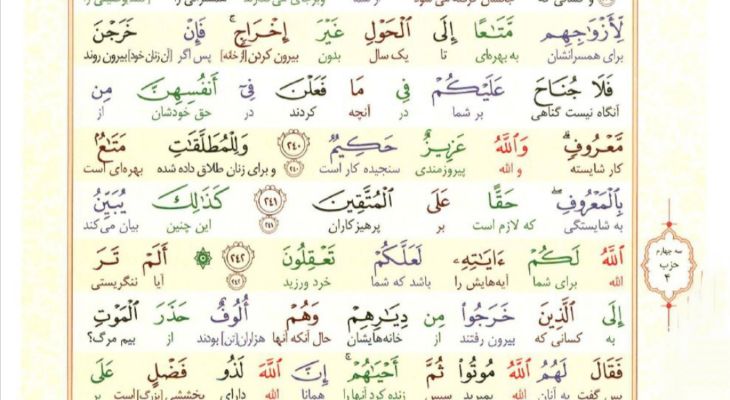 لِّأَزْوَٰجِهِم مَّتَـٰعًا إِلَى ٱلْحَوْلِ غَيْرَ إِخْرَاجٍ ۚ فَإِنْ خَرَجْنَ
برای همسرانشان به بهره‌ای تا یک سال بدون بیرون کردن [از خانه] پس اگر [آن زنان خود] بیرون روند
فَلَا جُنَاحَ عَلَيْكُمْ فِي مَا فَعَلْنَ فِيٓ أَنفُسِهِنَّ مِن
آنگاه نیست گناهی بر شما در آنچه کردند در حق خودشان از
مَّعْرُوفٍ ۗ وَٱللَّهُ عَزِيزٌ حَكِيمٌ ﴿٢٤٠﴾ وَلِلْمُطَلَّقَـٰتِ مَتَـٰعٌۢ
کار شایسته و الله پیروزمندی سنجیده کار است ﴿٢٤٠﴾ و برای زنان طلاق داده شده بهره‌ای است
بِٱلْمَعْرُوفِ ۖ حَقًّا عَلَى ٱلْمُتَّقِينَ ﴿٢٤١﴾ كَذَٰلِكَ يُبَيِّنُ
به شایستگی که لازم است بر پرهیزکاران ﴿٢٤١﴾ این چنین بیان می‌کند
ٱللَّهُ لَكُمْ ءَايَـٰتِهِۦ لَعَلَّكُمْ تَعْقِلُونَ ﴿٢٤٢﴾ ۞ أَلَمْ تَرَ
الله برای شما آیه‌هایش را باشد که شما خرد ورزید ﴿٢٤٢﴾ آیا ننگریستی
إِلَى ٱلَّذِينَ خَرَجُوا۟ مِن دِيَـٰرِهِمْ وَهُمْ أُلُوفٌ حَذَرَ ٱلْمَوْتِ
به کسانی که بیرون رفتند از خانه‌هایشان حال آنکه آنها هزاران [تن] بودند از بیم مرگ؟
فَقَالَ لَهُمُ ٱللَّهُ مُوتُوا۟ ثُمَّ أَحْيَـٰهُمْ ۚ إِنَّ ٱللَّهَ لَذُو فَضْلٍ عَلَى
پس گفت به آنان الله بمیرید سپس زنده کرد آنها را همانا الله دارای بخششی [بزرگ] است بر
سه چهارم
حزب
۴